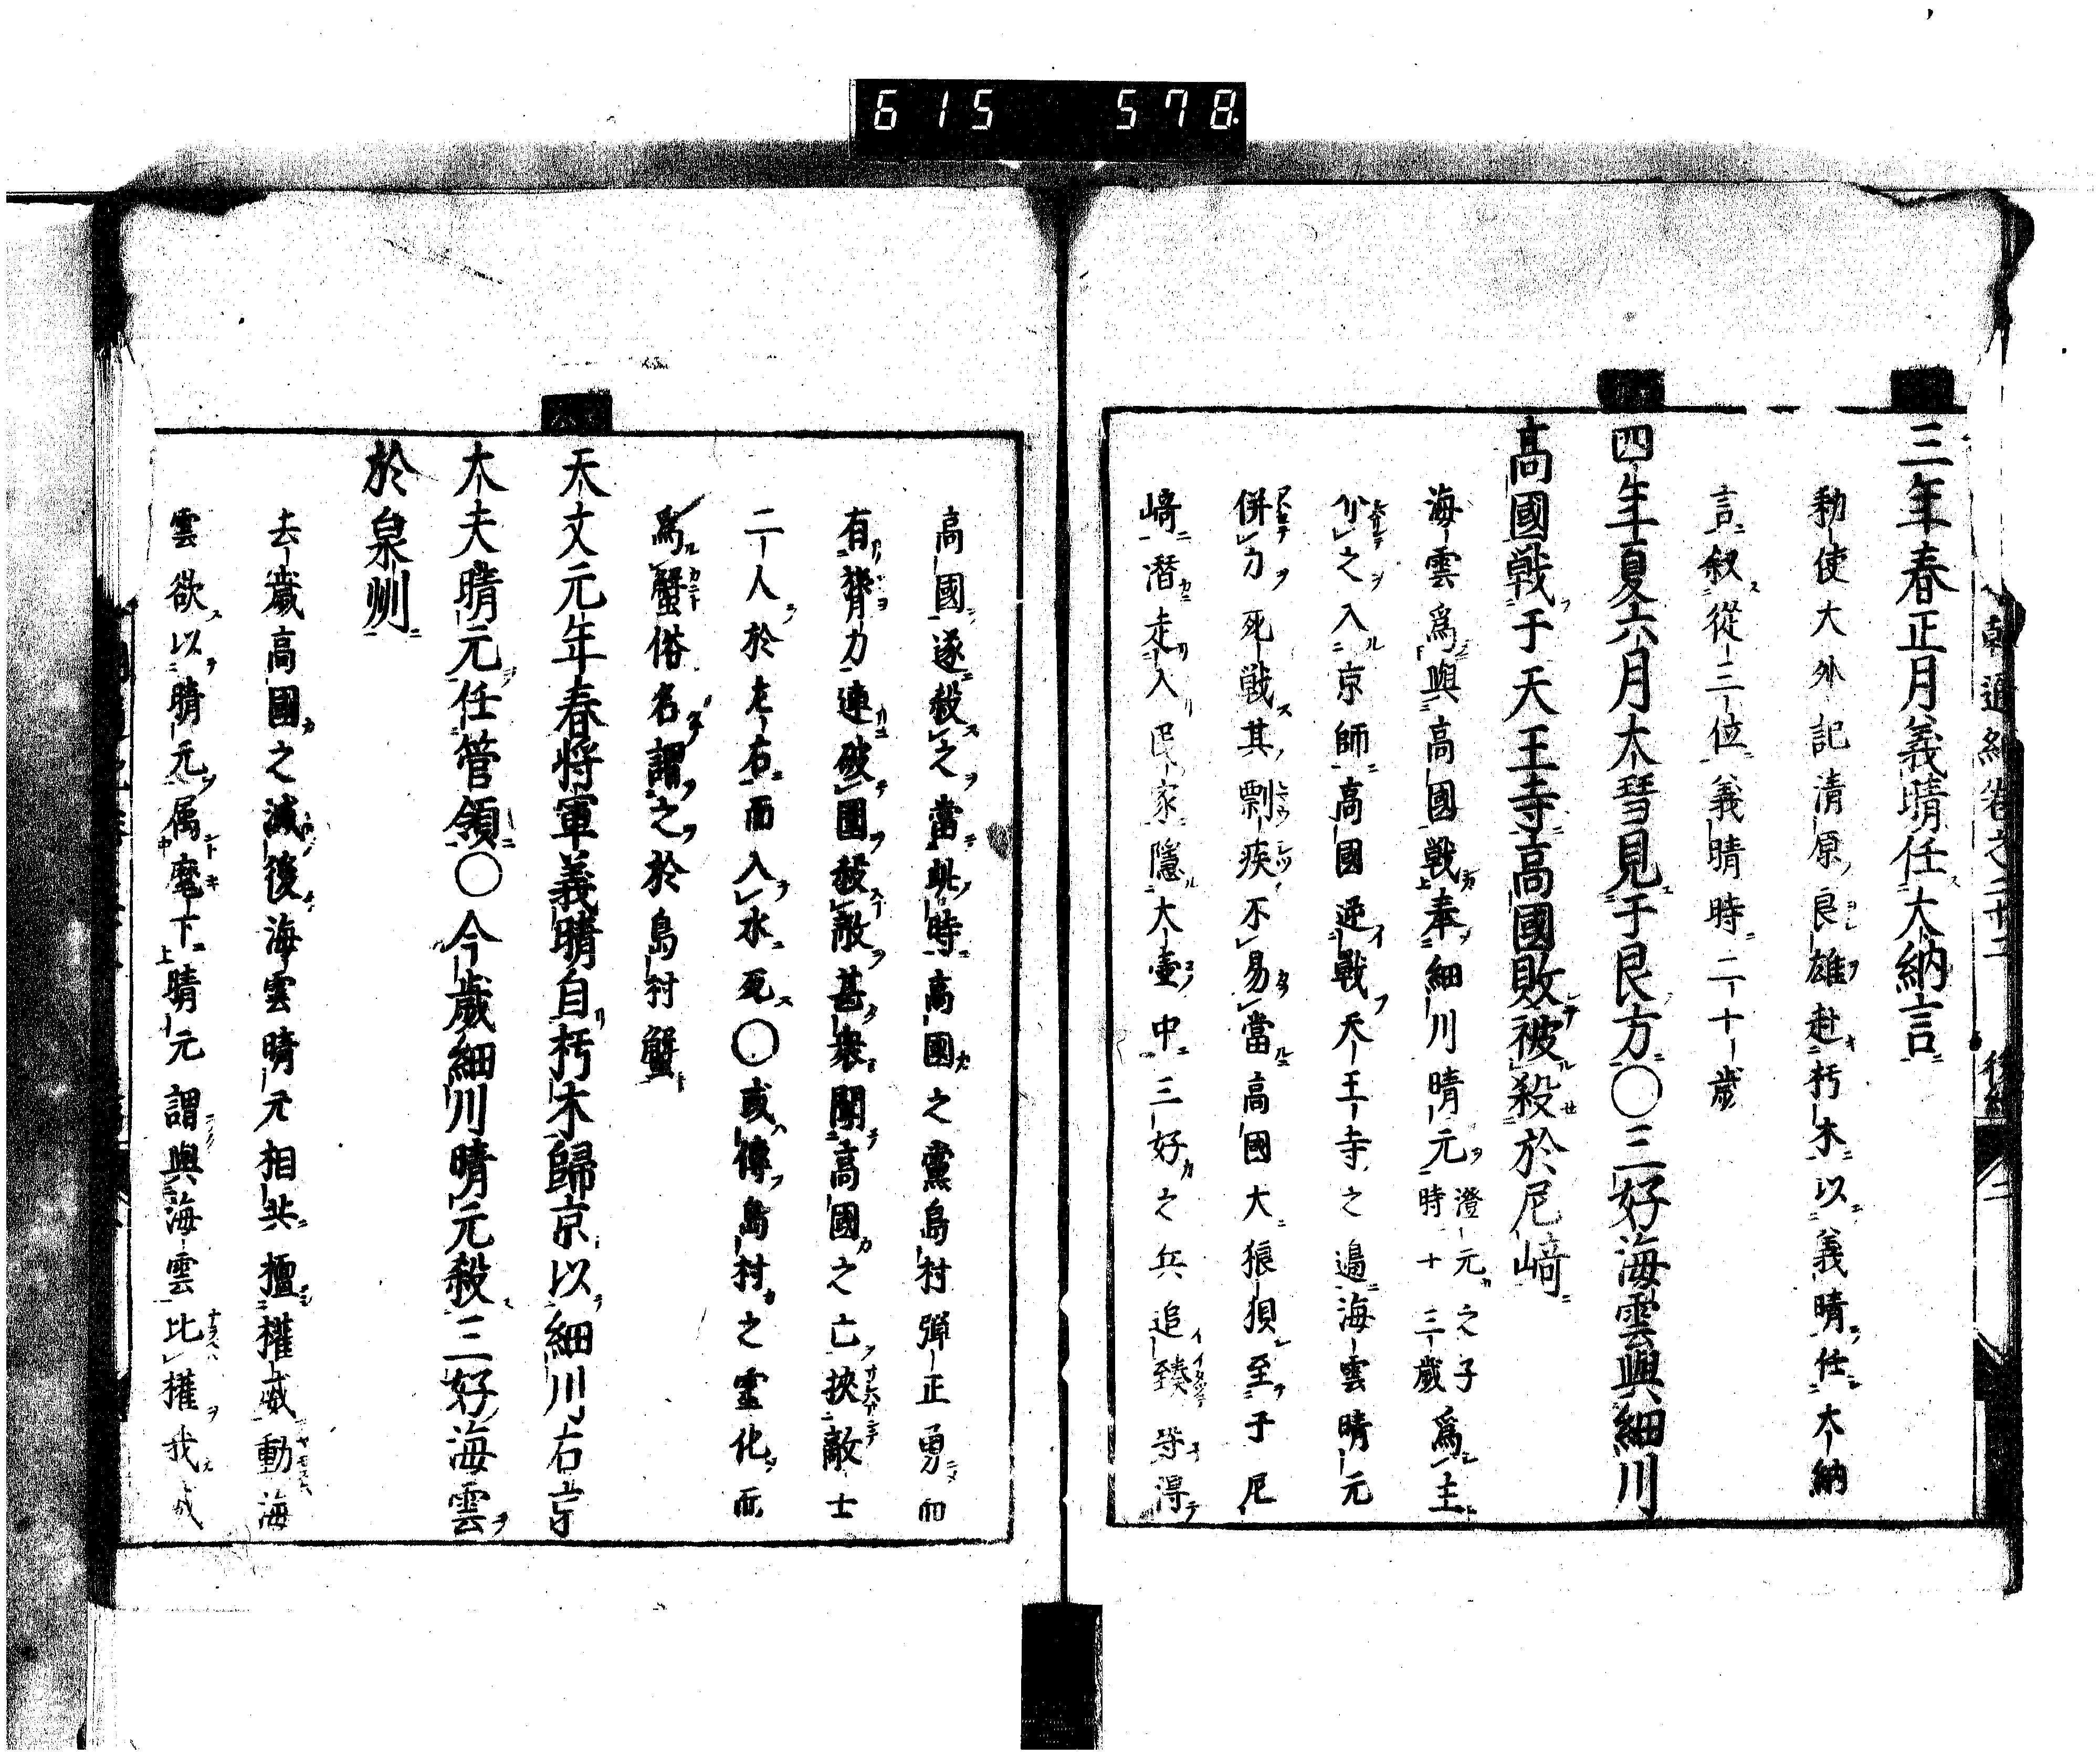 615 578.
三年春正月義晴任大納言
勅使大外記清原良雄赴朽木以義晴任大納
言叙從三位義晴時二十歳
四年夏六月太彗見于艮方〇三好海雲與細川
高國戰于天王寺高國敗被殺於尼﨑
海雲爲與高國戰奉細川晴元澄元之子時十三歳爲主
之入京師高國逆戰天王寺之邉海雲晴元
併力死戰其剽疾不易當高國大狼狽至于尼
﨑潛走入民家隱大壷中三好之兵追臻等得
高國遂殺之當此時高國之黨島村彈正勇而
有膂力連破圍殺敵甚衆聞高國之亡挾敵士
二人於左右而入水死〇或傳島村之霊化而
爲蟹俗名謂之於島村蟹
天文元年春将軍義晴自朽木歸京以細川右京
大夫晴元任管領〇今歳細川晴元殺三好海雲
於泉州
去歳高國之滅後海雲晴元相共擅權威動海
雲欲以晴元属麾下晴元謂與海雲比權我